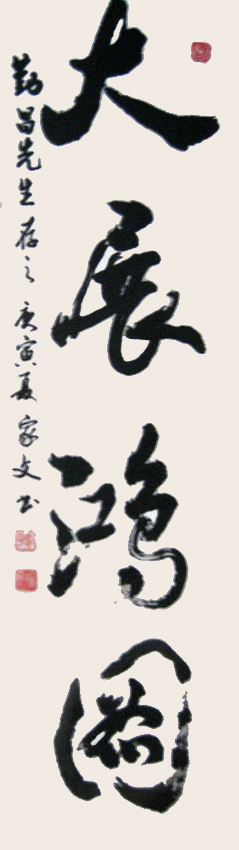 大展鸿图
勤昌先生存之 庚寅夏 家文书